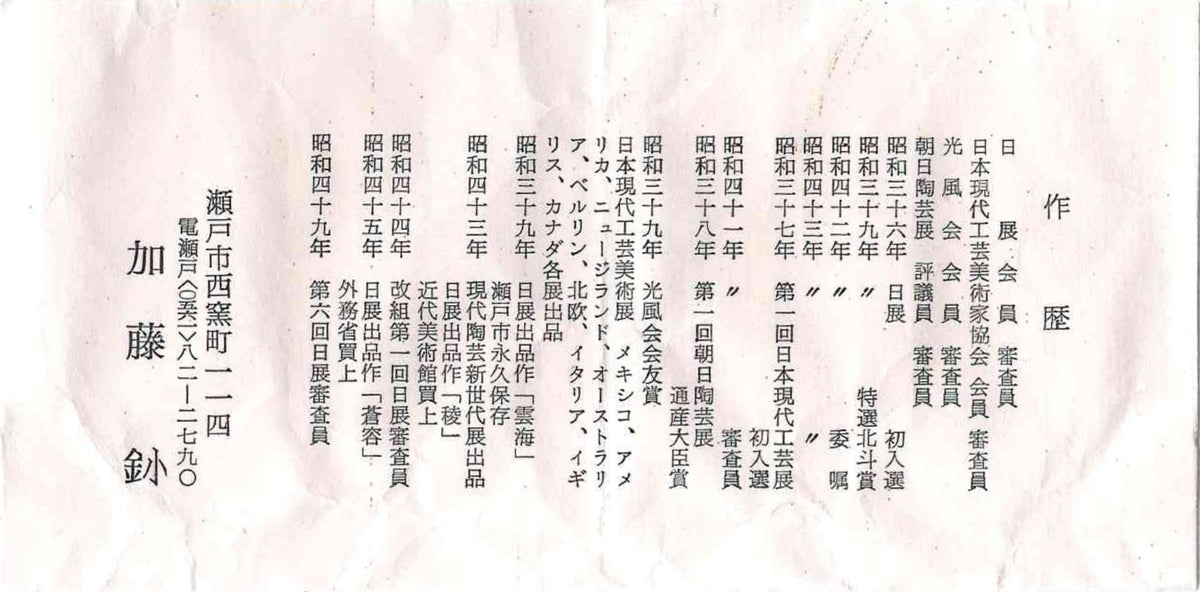 作歴
日展会員 審査員
日本現代工芸美術家協会 会員 審査員
光風会会員 審査員
朝日陶芸展 評議員 審査員
昭和三十六年 日展 初入選
昭和三十九年 〃 特選北斗賞
昭和四十二年 〃 委嘱
昭和四十三年 〃 〃
昭和三十七年 第一回日本現代工芸展
初入選
昭和四十一年 〃 審査員
昭和三十八年 第一回朝日陶芸展
通産大臣賞
昭和三十九年 光風会会友賞
日本現代工芸美術展 メキシコ、アメ
リカ、ニュージランド、オーストラリ
ア、ベルリン、北欧、イタリア、イギ
リス、カナダ各展出品
昭和三十九年 日展出品作「雲海」
瀬戸市永久保存
昭和四十三年 現代陶芸新世代展出品
日展出品作「稜」
近代美術館買上
昭和四十四年 改組第一回日展審査員
昭和四十五年 日展出品作「蒼容」
外務省買上
昭和四十九年 第六回日展審査員
瀬戸市西窯町一一四
電瀬戸〈〇五六一〉八二―二七九〇
加藤釥